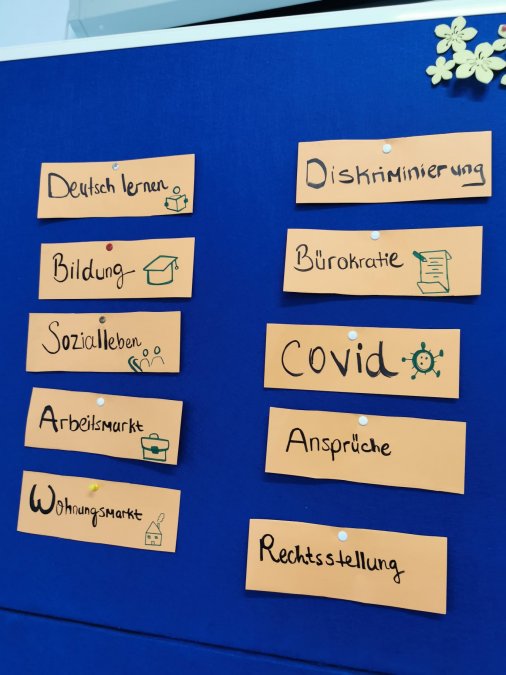 Deutsch lernen
Bildung
Sozialleben
Arbeitsmarkt
Wohnungsmarkt
Diskriminierung
Bürokratie
Covid
Ansprüche
Rechtsstellung